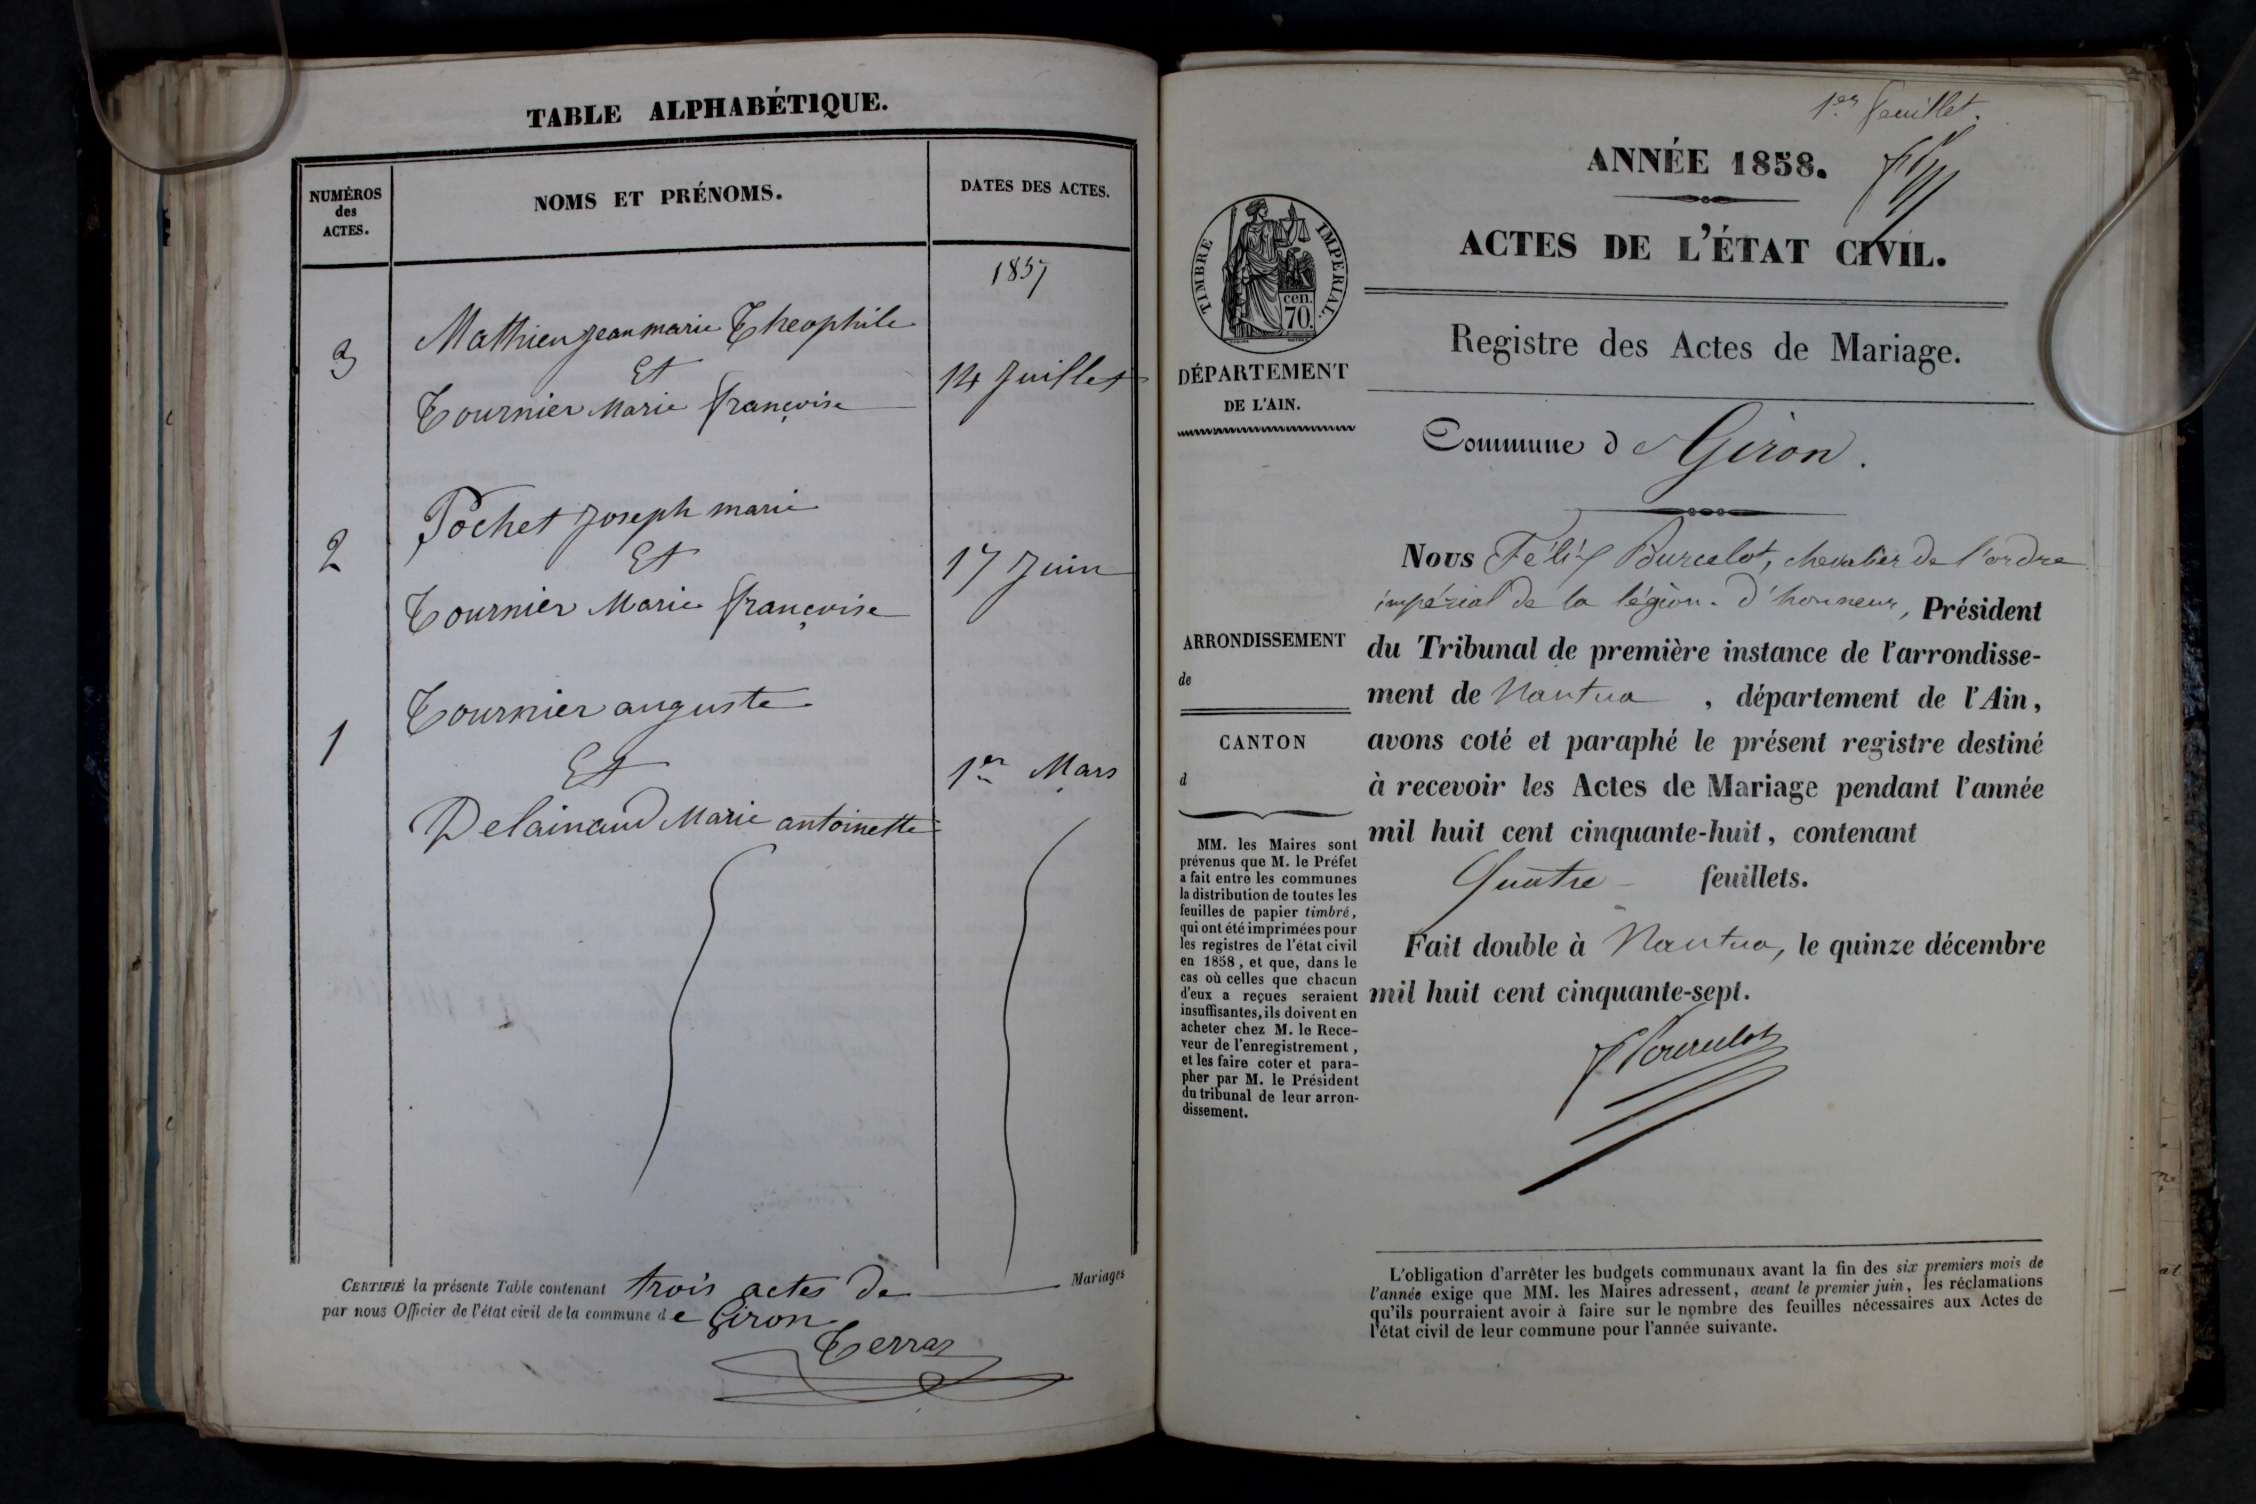 TABLE ALPHABÉTIQUE.
NUMÉROS
des
ACTES.
NOMS ET PRÉNOMS.
DATES DES ACTES.
1857
3
Mathieu jean marie Theophile
Et
Tournier Marie françoise
14 Juillet
2
Pochet Joseph marie
Et
Tournier Marie françoise
17 Juin
1
Tournier auguste
Et
Delainaud Marie antoinette
1er Mars
CERTIFIÉ la présente Table contenant trois actes de Mariages
par nous Officier de l'état civil de la commune de Giron
Terraz
1er feuillet.
ANNÉE 1858.
ACTES DE L'ÉTAT CIVIL.
TIMBRE IMPÉRIAL.
cen.
70.
DÉPARTEMENT
DE L'AIN.
Registre des Actes de Mariage.
Commune d Giron.
Nous Félix Burcelot, chevalier de l'ordre
impérial de la légion d'honneur, Président
du Tribunal de première instance de l'arrondisse-
ment de Nantua, département de l'Ain,
avons coté et paraphé le présent registre destiné
à recevoir les Actes de Mariage pendant l'année
mil huit cent cinquante-huit, contenant
Quatre feuillets.
Fait double à Nantua, le quinze décembre
mil huit cent cinquante-sept.
ARRONDISSEMENT
de
CANTON
d
MM. les Maires sont
prévenus que M. le Préfet
a fait entre les communes
la distribution de toutes les
feuilles de papier timbré,
qui ont été imprimées pour
les registres de l'état civil
en 1858, et que, dans le
cas où celles que chacun
d'eux a reçues seraient
insuffisantes, ils doivent en
acheter chez M. le Rece-
veur de l'enregistrement,
et les faire coter et para-
pher par M. le Président
du tribunal de leur arron-
dissement.
L'obligation d'arrêter les budgets communaux avant la fin des six premiers mois de
l'année exige que MM. les Maires adressent, avant le premier juin, les réclamations
qu'ils pourraient avoir à faire sur le nombre des feuilles nécessaires aux Actes de
l'état civil de leur commune pour l'année suivante.